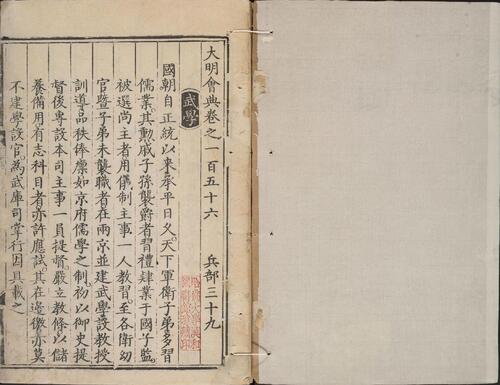 大明會典卷之一百五十六　兵部三十九
武學
國朝自正統以來承平日久。天下軍衛子弟多習
儒業。其勳戚子孫襲爵者習禮肄業于國子監。
被選尚主者用儀制主事一人教習。至各衛幼
官暨子弟未襲職者在兩京並建武學設教授
訓導。品秩俸廩如京府儒學之制。初以御史提
督後專設本司主事一員提督。嚴立教條。以儲
養備用。有志科目者亦許應試。其在邊徼亦莫
不建學設官。為武庫司掌行。因具載之